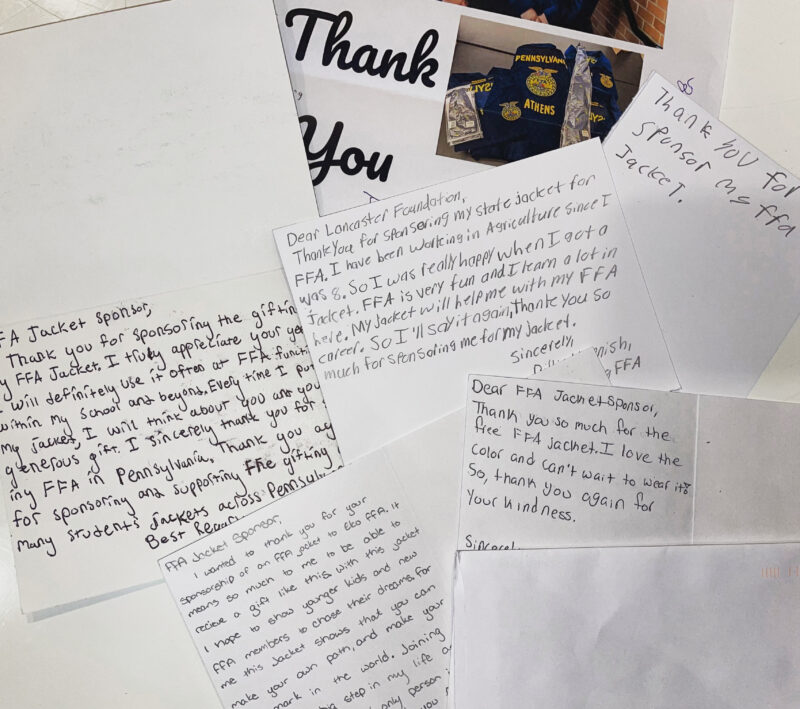 Thank
You
PENNSYLVANIA
ATHENS
Thank you for
sponsor my ffa
Jacket.
Dear Lancaster Foundation,
Thank you for sponsoring my state jacket for
FFA. I have been working in Agriculture since I
was 8. So I was really happy when I got a
jacket. FFA is very fun and I learn a lot in
here. My jacket will help me with my FFA
career. So I'll say it again, Thank you so
much for sponsoring me for my jacket.
Sincerely,
FFA
FA Jacket Sponsor,
Thank you for sponsoring the gifting
y FFA Jacket. I truly appreciate your ge
I will definitely use it often at FFA functi
within my school and beyond. Every time I put
my jacket, I will think about you and you
generous gift. I sincerely thank you for
ing FFA in Pennsylvania. Thank you ag
for sponsoring and supporting the gifting
many students jackets across Pennsylv
Best Regar
Dear FFA Jacket Sponsor,
Thank you so much for the
free FFA jacket. I love the
color and can't wait to wear it!
So, thank you again for
your kindness.
Sincerel
FFA Jacket Sponsor,
I wanted to thank you for your
sponsorship of an FFA jacket to Elco FFA. It
means so much to me to be able to
recieve a gift like this. With this jacket
I hope to show younger kids and new
FFA members to chase their dreams. for
me this jacket shows that you can
make your own path, and make your
mark in the world. Joining
step in my life a
only person
you